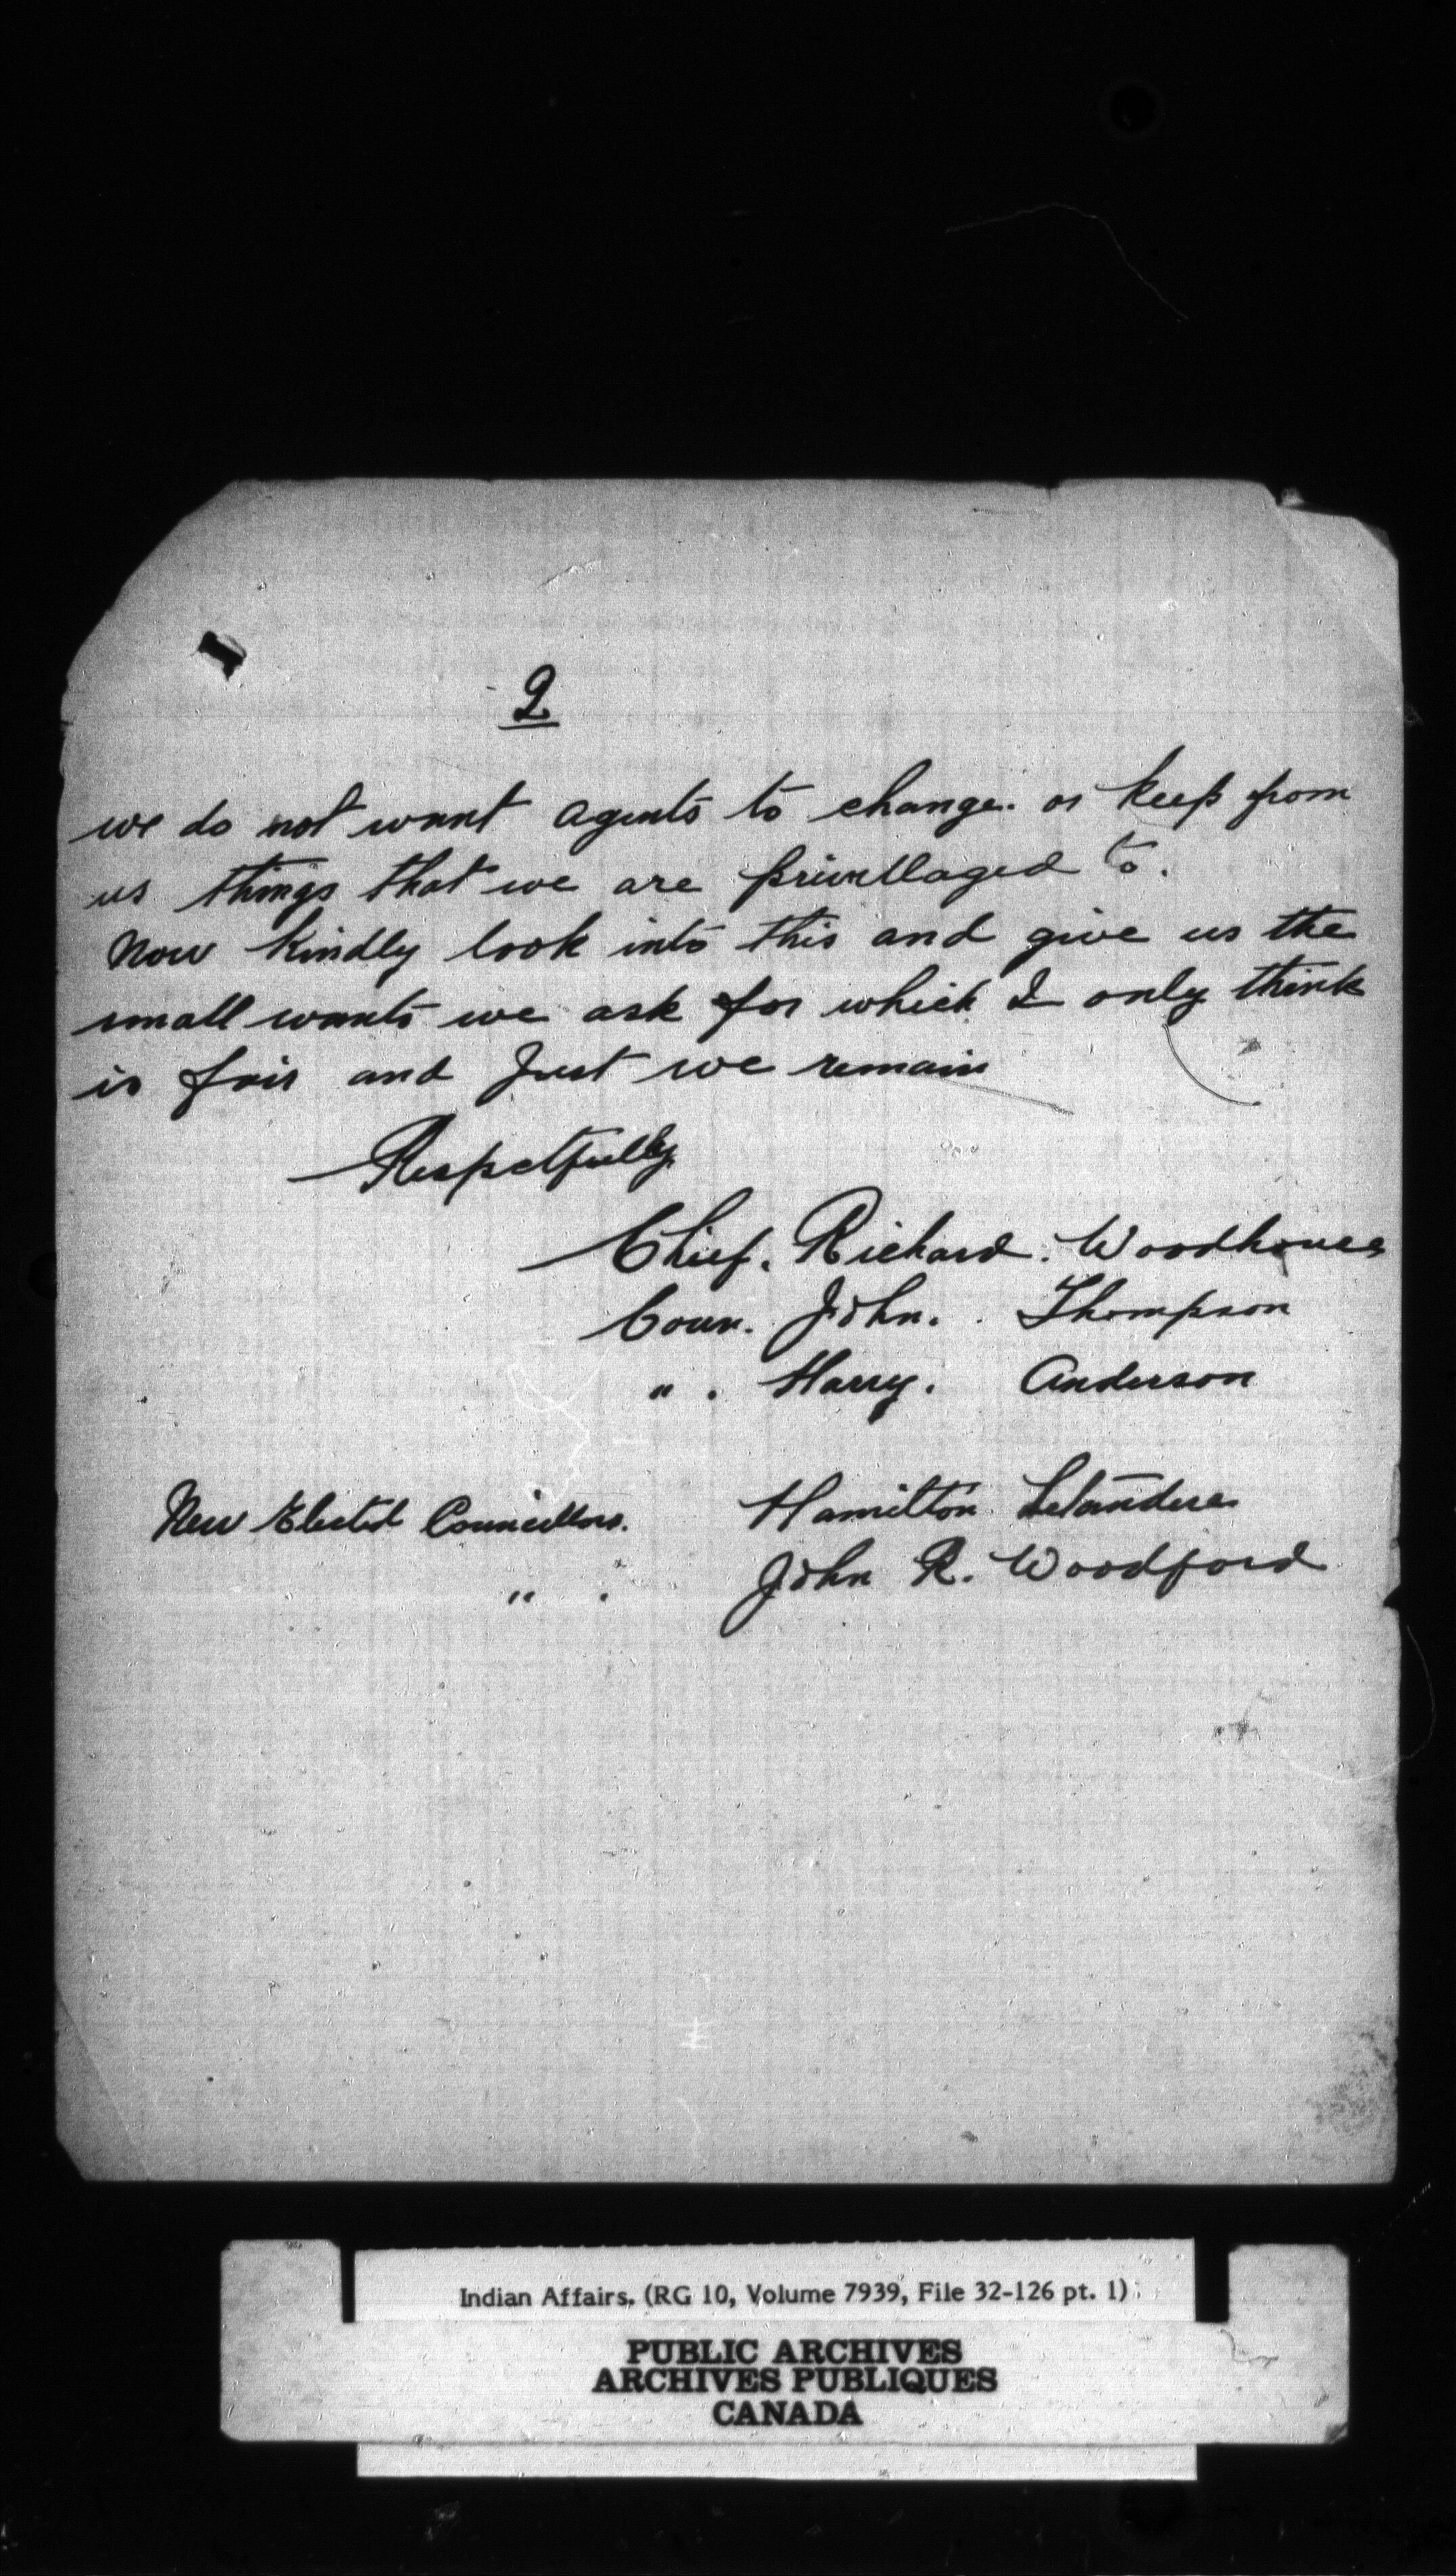 2
we do not want agents to change. or keep from
us things that we are privellaged to.
Now Kindly look into this and give us the
small wants we ask for which I only think
is fair and Just we remain
Respetfully
Chief. Richard. Woodhouse
Coun. John. Thompson
" . Harry. Anderson
New Elected Councillors. Hamilton
" . John R. Woodford
Indian Affairs. (RG 10, Volume 7939, File 32-126 pt. 1)
PUBLIC ARCHIVES
ARCHIVES PUBLIQUES
CANADA